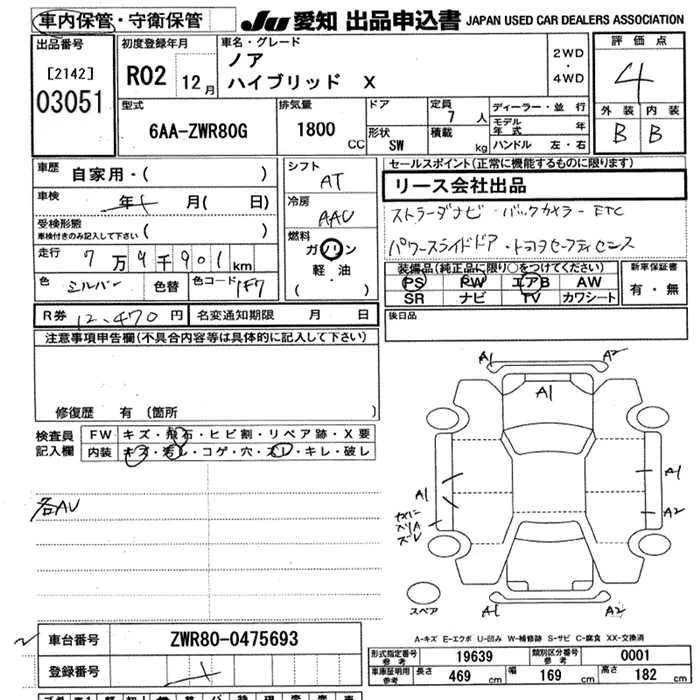 車内保管・守衛保管
JU 愛知 出品申込書 JAPAN USED CAR DEALERS ASSOCIATION
出品番号
[2142]
03051
初度登録年月
R02 12月
車名・グレード
ノア
ハイブリッド X
2WD
・
4WD
評価点
4
外装 内装
B B
型式
6AA-ZWR80G
排気量
1800 CC
ドア
形状 SW
定員
7 人
積載 kg
ディーラー・並行
モデル年式 年
ハンドル 左・右
車歴
自家用・( )
車検
年 月( 日)
受検形態
車検付きのみ記入して下さい ( )
走行 7万9千901km
色 シルバー 色替 色コード 1F7
シフト
AT
冷房
AAC
燃料
ガソリン
軽・油
( )
セールスポイント(正常に機能するものに限ります)
リース会社出品
ストラーダナビ・バックカメラ・ETC
パワースライドドア・トヨタセーフティセンス
装備品(純正品に限り○をつけてください)
PS PW エアB AW
SR ナビ TV カワシート
新車保証書
有・無
R券 12,470円 名変通知期限 月 日
後日品
注意事項申告欄(不具合内容等は具体的に記入して下さい)
修復歴 有 〔箇所 〕
検査員
記入欄
FW キズ・飛石・ヒビ割・リペア跡・X要
内装 キズ・汚レ・コゲ・穴・スレ・キレ・破レ
各AU
A1 A2
A1
A1 A1
A2
スリA
スレ
A1 A2
スペア
A-キズ E-エクボ U-凹み W-補修跡 S-サビ C-腐食 XX-交換済
車台番号 ZWR80-0475693
登録番号
形式指定番号 参考 19639 類別区分番号 参考 0001
車庫証明用 参考 長さ 469 cm 幅 169 cm 高さ 182 cm